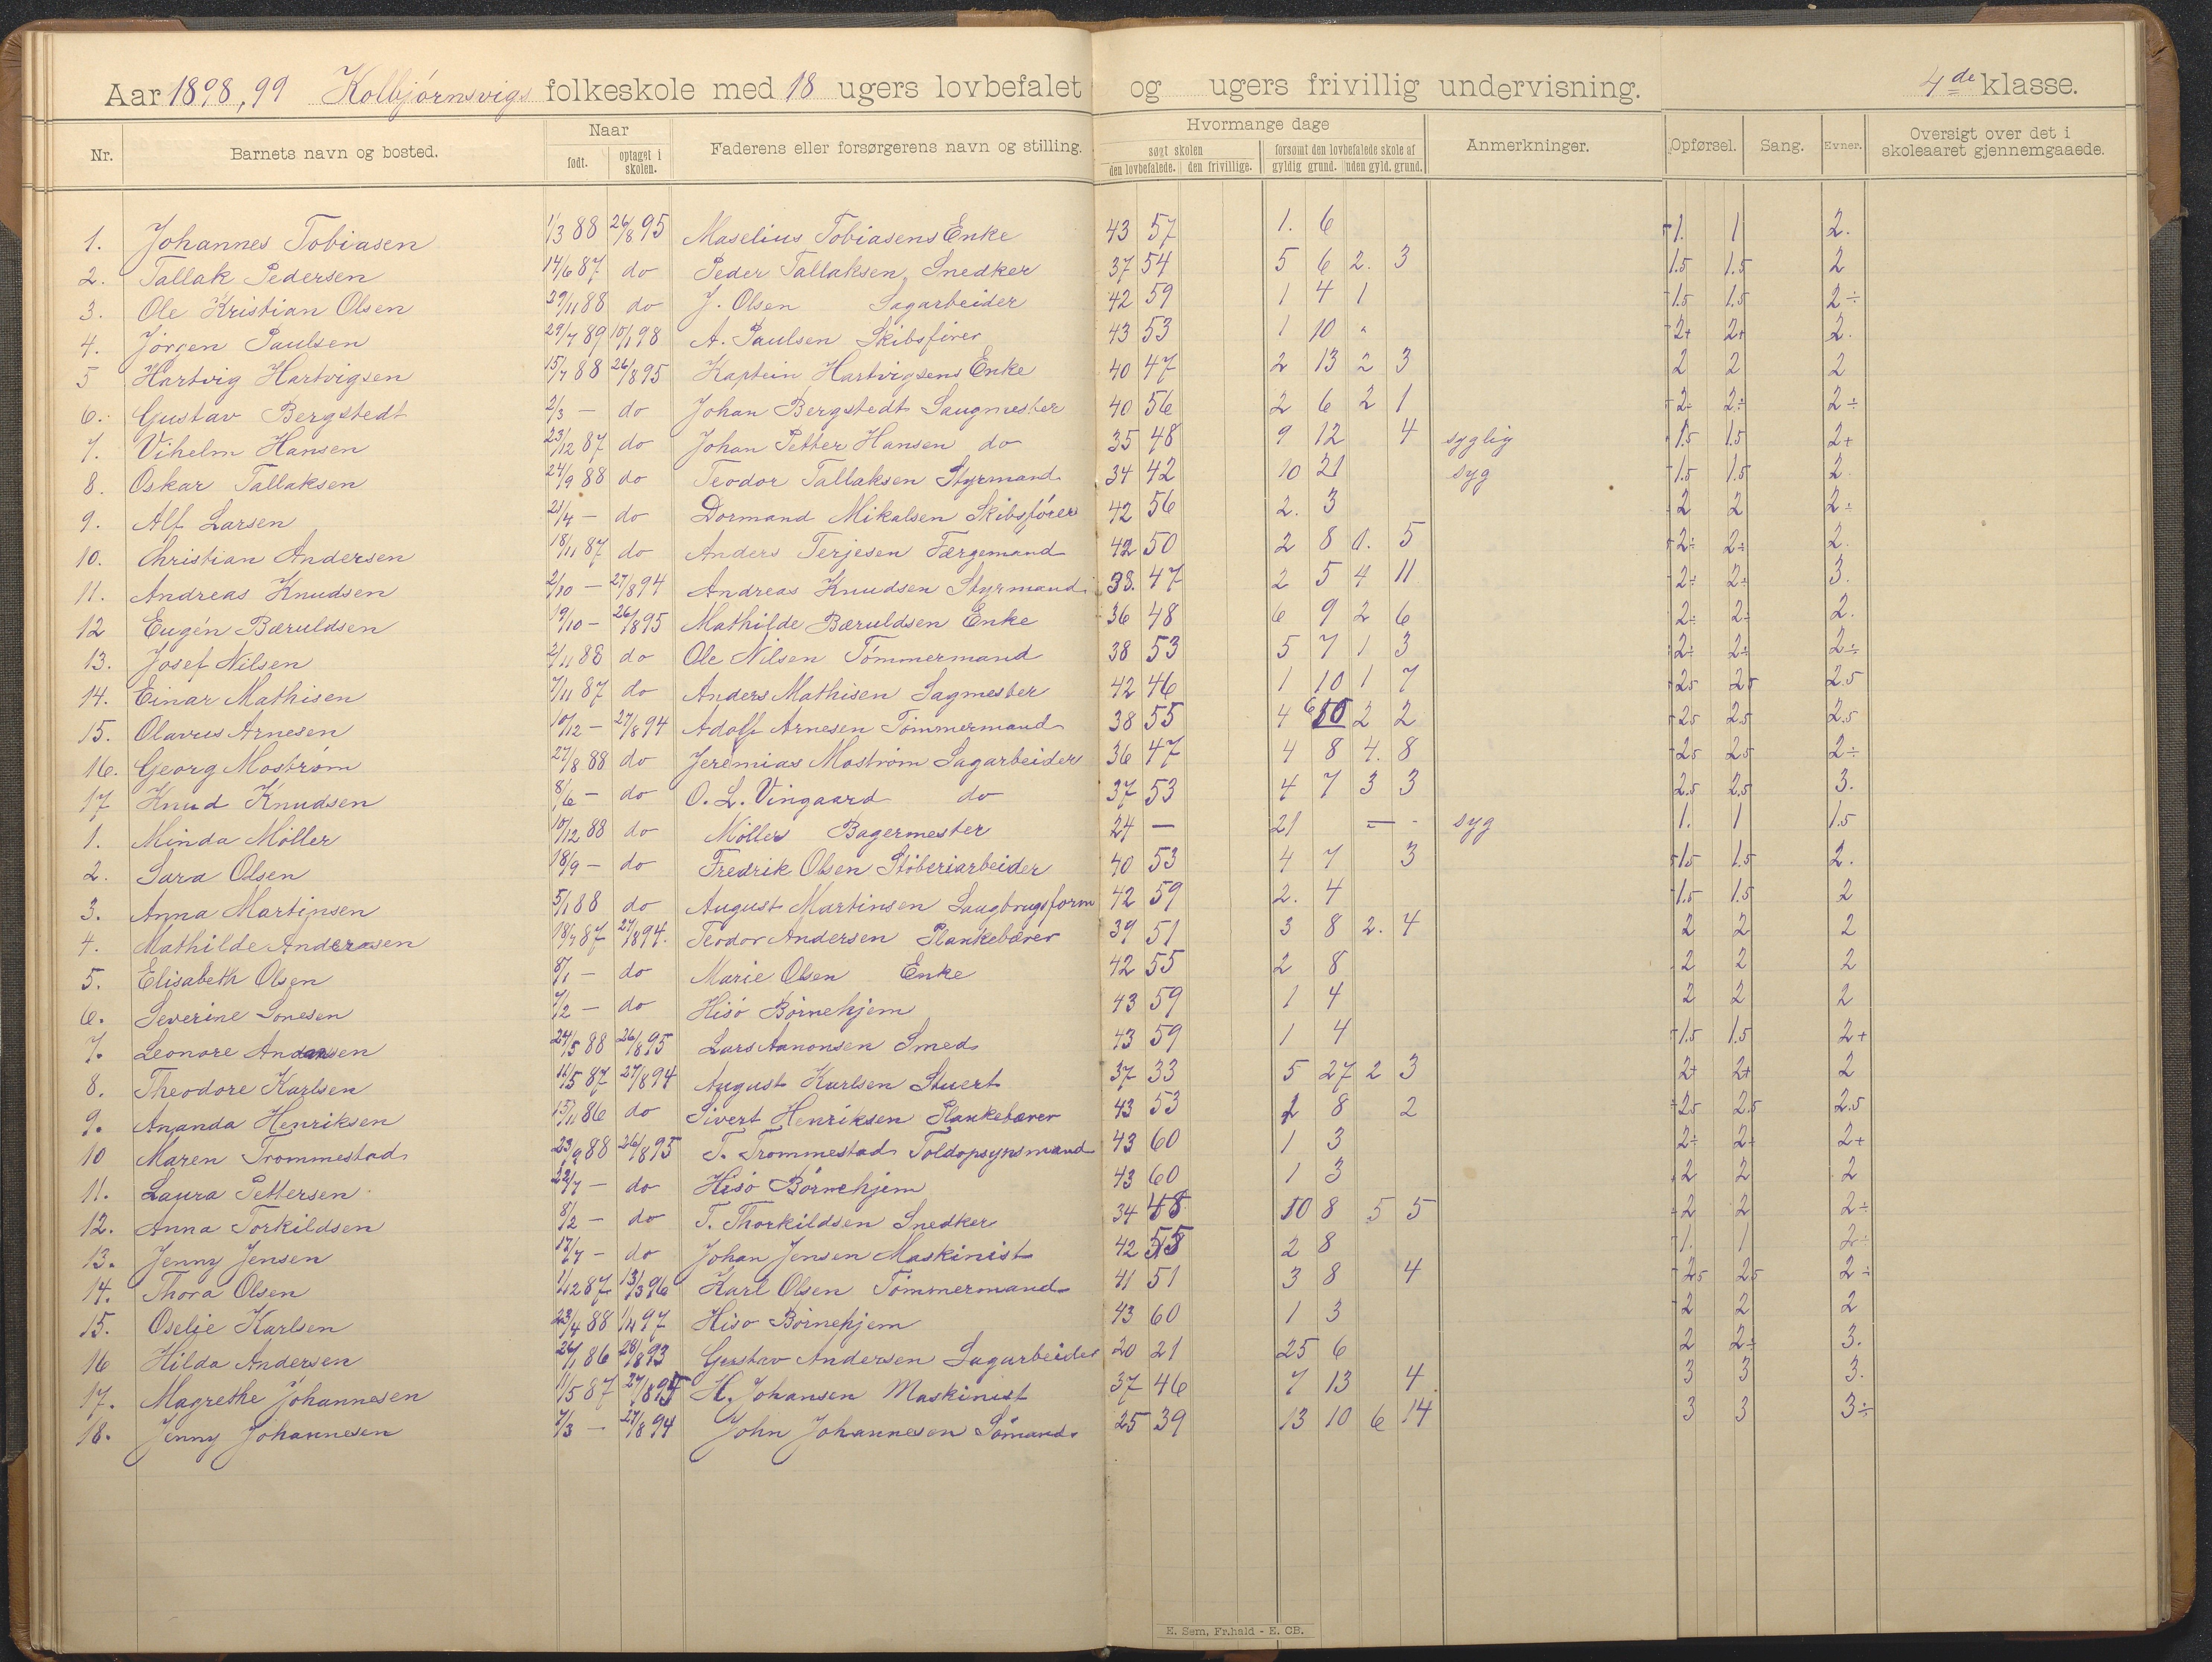 Aar 1898,99 Kolbjörnsvigs folkeskole med 18 ugers lovbefalet og ugers frivillig undervisning. 4de klasse.
Nr. Barnets navn og bosted. Naar født. optaget i skolen. Faderens eller forsørgerens navn og stilling. Hvormange dage søgt skolen den lovbefalede. den frivillige. forsømt den lovbefalede skole af gyldig grund. uden gyld. grund. Anmerkninger. Opførsel. Sang. Evner. Oversigt over det i skoleaaret gjennemgaaede.
1. Johannes Tobiasen 1/3 88 26/8 95 Maselius Tobiasens Enke 43 57 1. 6 1. 1 2.
2. Tallak Pedersen 14/6 87 do Peder Tallaksen Snedker 37 54 5 6 2. 3 1.5 1.5 2
3. Ole Kristian Olsen 29/11 88 do J. Olsen Sagarbeider 42 59 1 4 1 1.5 1.5 2÷
4. Jörgen Paulsen 29/7 89 10/1 98 A. Paulsen Skibsfører 43 53 1 10 2+ 2+ 2.
5 Hartvig Hartvigsen 15/7 88 26/8 95 Kaptein Hartvigsens Enke 40 47 2 13 2 3 2 2 2
6. Gustav Bergstedt 2/3 — do Johan Bergstedt Saugmester 40 56 2 6 2 1 2÷ 2÷ 2÷
7. Vihelm Hansen 23/12 87 do Johan Petter Hansen do 35 48 9 12 4 syglig 1.5 1.5 2+
8. Oskar Tallaksen 24/9 88 do Teodor Tallaksen Styrmand 34 42 10 21 syg 1.5 1.5 2
9. Alf Larsen 21/4 — do Dormand Mikalsen Skibsfører 42 56 2. 3 2 2 2÷
10. Christian Andersen 18/11 87 do Anders Terjesen Færgemand 42 50 2 8 1. 5 2÷ 2÷ 2.
11. Andreas Knudsen 2/10 — 27/8 94 Andreas Knudsen Styrmand 38. 47 2 5 4 11 2÷ 2÷ 3.
12 Eugén Bæruldsen 19/10 — 26/8 95 Mathilde Bæruldsen Enke 36 48 6 9 2 6 2÷ 2÷ 2.
13. Josef Nilsen 2/11 88 do Ole Nilsen Tömmermand 38 53 5 7 1 3 2÷ 2÷ 2÷
14. Einar Mathisen 7/11 87 do Anders Mathisen Sagmester 42 46 1 10 1 7 2.5 2.5 2.5
15. Olavus Arnesen 10/12 — 27/8 94 Adolf Arnesen Tömmermand 38 55 4 2 2 2.5 2.5 2.5
16. Georg Moström 27/8 88 do Jeremias Moström Sagarbeider 36 47 4 8 4. 8 2.5 2.5 2÷
17 Knud Knudsen 8/6 — do O. L. Vingaard do 37 53 4 7 3 3 2.5 2.5 3.
1. Minda Möller 10/12 88 do Möller Bagermester 24 — 21 — - syg 1. 1 1.5
2. Sara Olsen 18/9 — do Fredrik Olsen Stöberiarbeider 40 53 4 7 3 1.5 1.5 2.
3. Anna Martinsen 5/1 88 do August Martinsen Saugbrugsform 42 59 2. 4 1.5 1.5 2
4. Mathilde Andersen 18/7 87 27/8 94. Teodor Andersen Plankebærer 39 51 3 8 2. 4 2 2 2
5. Elisabeth Olsen 8/1 — do Marie Olsen Enke 42 55 2 8 2 2 2
6. Severine Sonesen 7/2 — do Hisö Börnehjem 43 59 1 4 2 2 2
7. Leonore Andersen 24/5 88 26/8 95 Lars Aanonsen Smed 43 59 1 4 1.5 1.5 2+
8. Theodore Karlsen 11/5 87 27/8 94 August Karlsen Stuert 37 33 5 27 2 3 2+ 2+ 2
9. Ananda Henriksen 15/11 86 do Sivert Henriksen Plankebærer 43 53 2 8 2 2.5 2.5 2.5
10 Maren Trommestad 23/9 88 26/8 95 T. Trommestad Toldopsynsmand 43 60 1 3 2÷ 2÷ 2+
11. Laura Pettersen 22/7 — do Hisö Börnehjem 43 60 1 3 2 2 2
12. Anna Torkildsen 8/2 — do T. Thorkildsen Snedker 34 48 10 8 5 5 2 2 2÷
13. Jenny Jensen 17/7 — do Johan Jensen Maskinist 42 55 2 8 1. 1 2÷
14. Thora Olsen 1/12 87 13/3 96 Karl Olsen Tömmermand 41 51 3 8 4 2.5 2.5 2÷
15. Oselie Karlsen 23/4 88 1/4 97 Hisö Börnehjem 43 60 1 3 2 2 2
16 Hilda Andersen 26/1 86 28/8 93 Gustav Andersen Sagarbeider 20 21 25 6 2 2÷ 3.
17. Magrethe Johannesen 11/5 87 27/8 95 H. Johansen Maskinist 37 46 7 13 4 3 3 3.
18. Jenny Johannesen 7/3 — 27/8 94 John Johannesen Sömand 25 39 13 10 6 14 3 3 3÷
E. Sem, Fr.hald - E. CB.